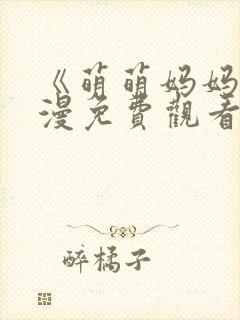 《萌萌妈妈
漫免費觀看
醉橘子